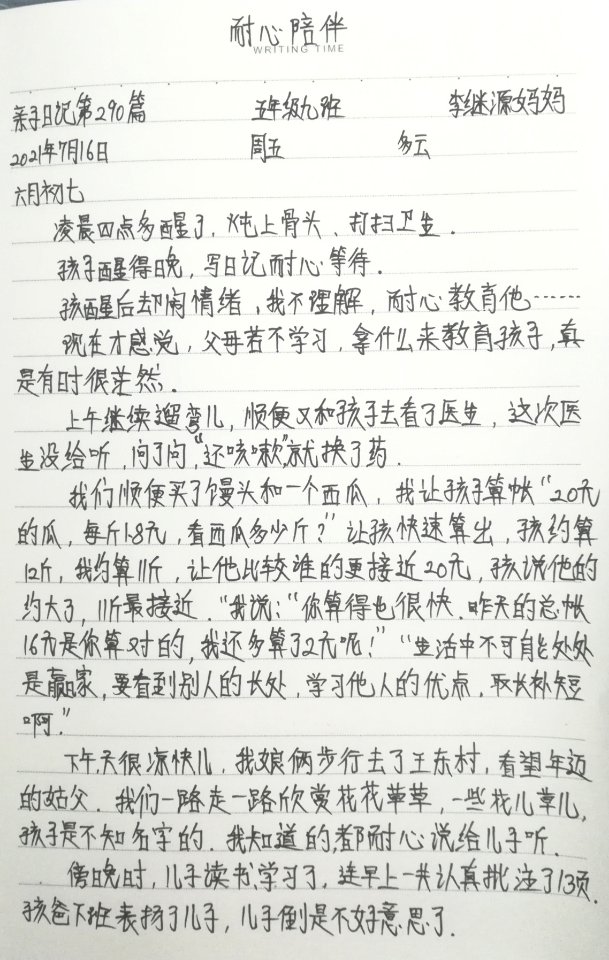 耐心陪伴
WRITING TIME
亲子日记第290篇 五年级九班 李继源妈妈
2021年7月16日 周五 多云
六月初七
凌晨四点多醒了,炖上骨头、打扫卫生.
孩子醒得晚,写日记耐心等待.
孩醒后却闹情绪,我不理解,耐心教育他……
现在才感觉,父母若不学习,拿什么来教育孩子,真
是有时很茫然.
上午继续遛弯儿,顺便又和孩子去看了医生,这次医
生没给听,问了问,“还咳嗽”就换了药.
我们顺便买了馒头和一个西瓜,我让孩子算帐“20元
的瓜,每斤1.8元,看西瓜多少斤?”让孩快速算出,孩约算
12斤,我约算11斤,让他比较谁的更接近20元,孩说他的
约大了,11斤最接近.“我说:“你算得也很快.昨天的总帐
16元是你算对的,我还多算了2元呢!”“生活中不可能处处
是赢家,要看到别人的长处,学习他人的优点,取长补短
啊.”
下午天很凉快儿,我娘俩步行去了王东村,看望年迈
的姑父.我们一路走一路欣赏花花草草,一些花儿草儿,
孩子是不知名字的.我知道的,都耐心说给儿子听.
傍晚时,儿子读书、学习了,连早上一共认真批注了13页.
孩爸下班表扬了儿子,儿子倒是不好意思了.